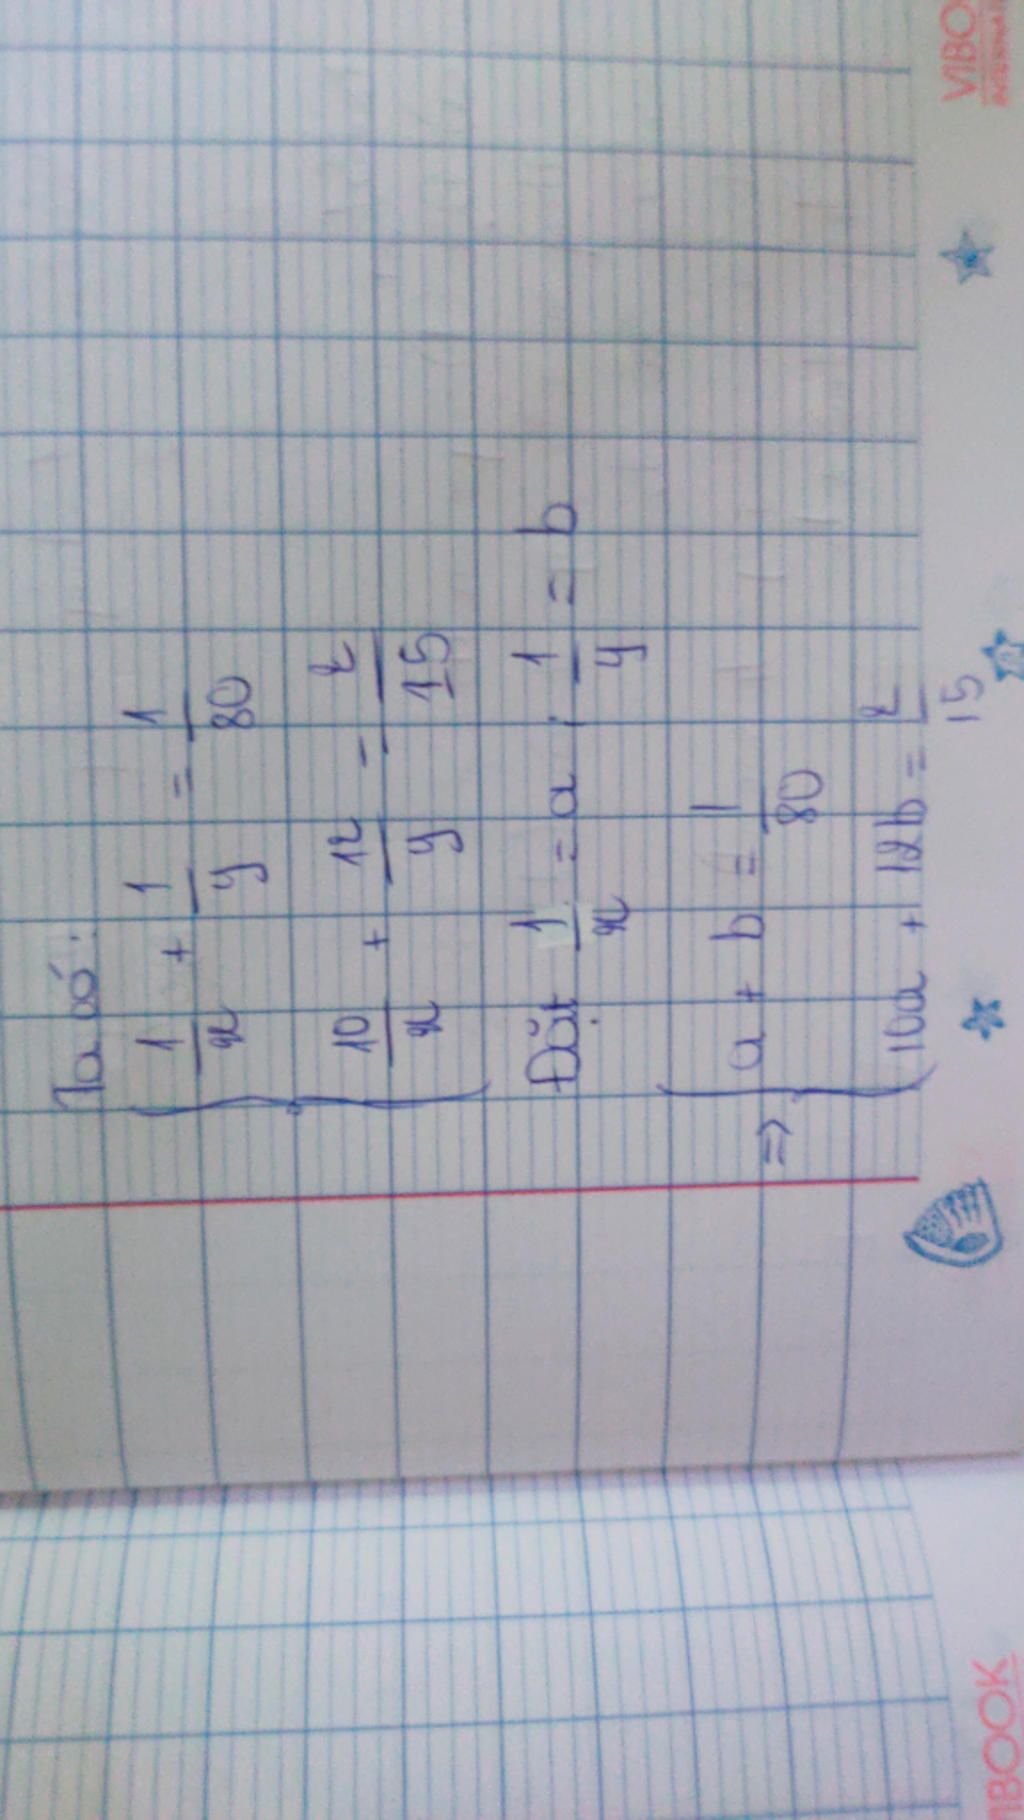 Ta có:
1/x + 1/y = 1/80
10/x + 12/y = 2/15
Đặt 1/x = a; 1/y = b
=> a + b = 1/80
10a + 12b = 2/15
VIBO
IBOOK